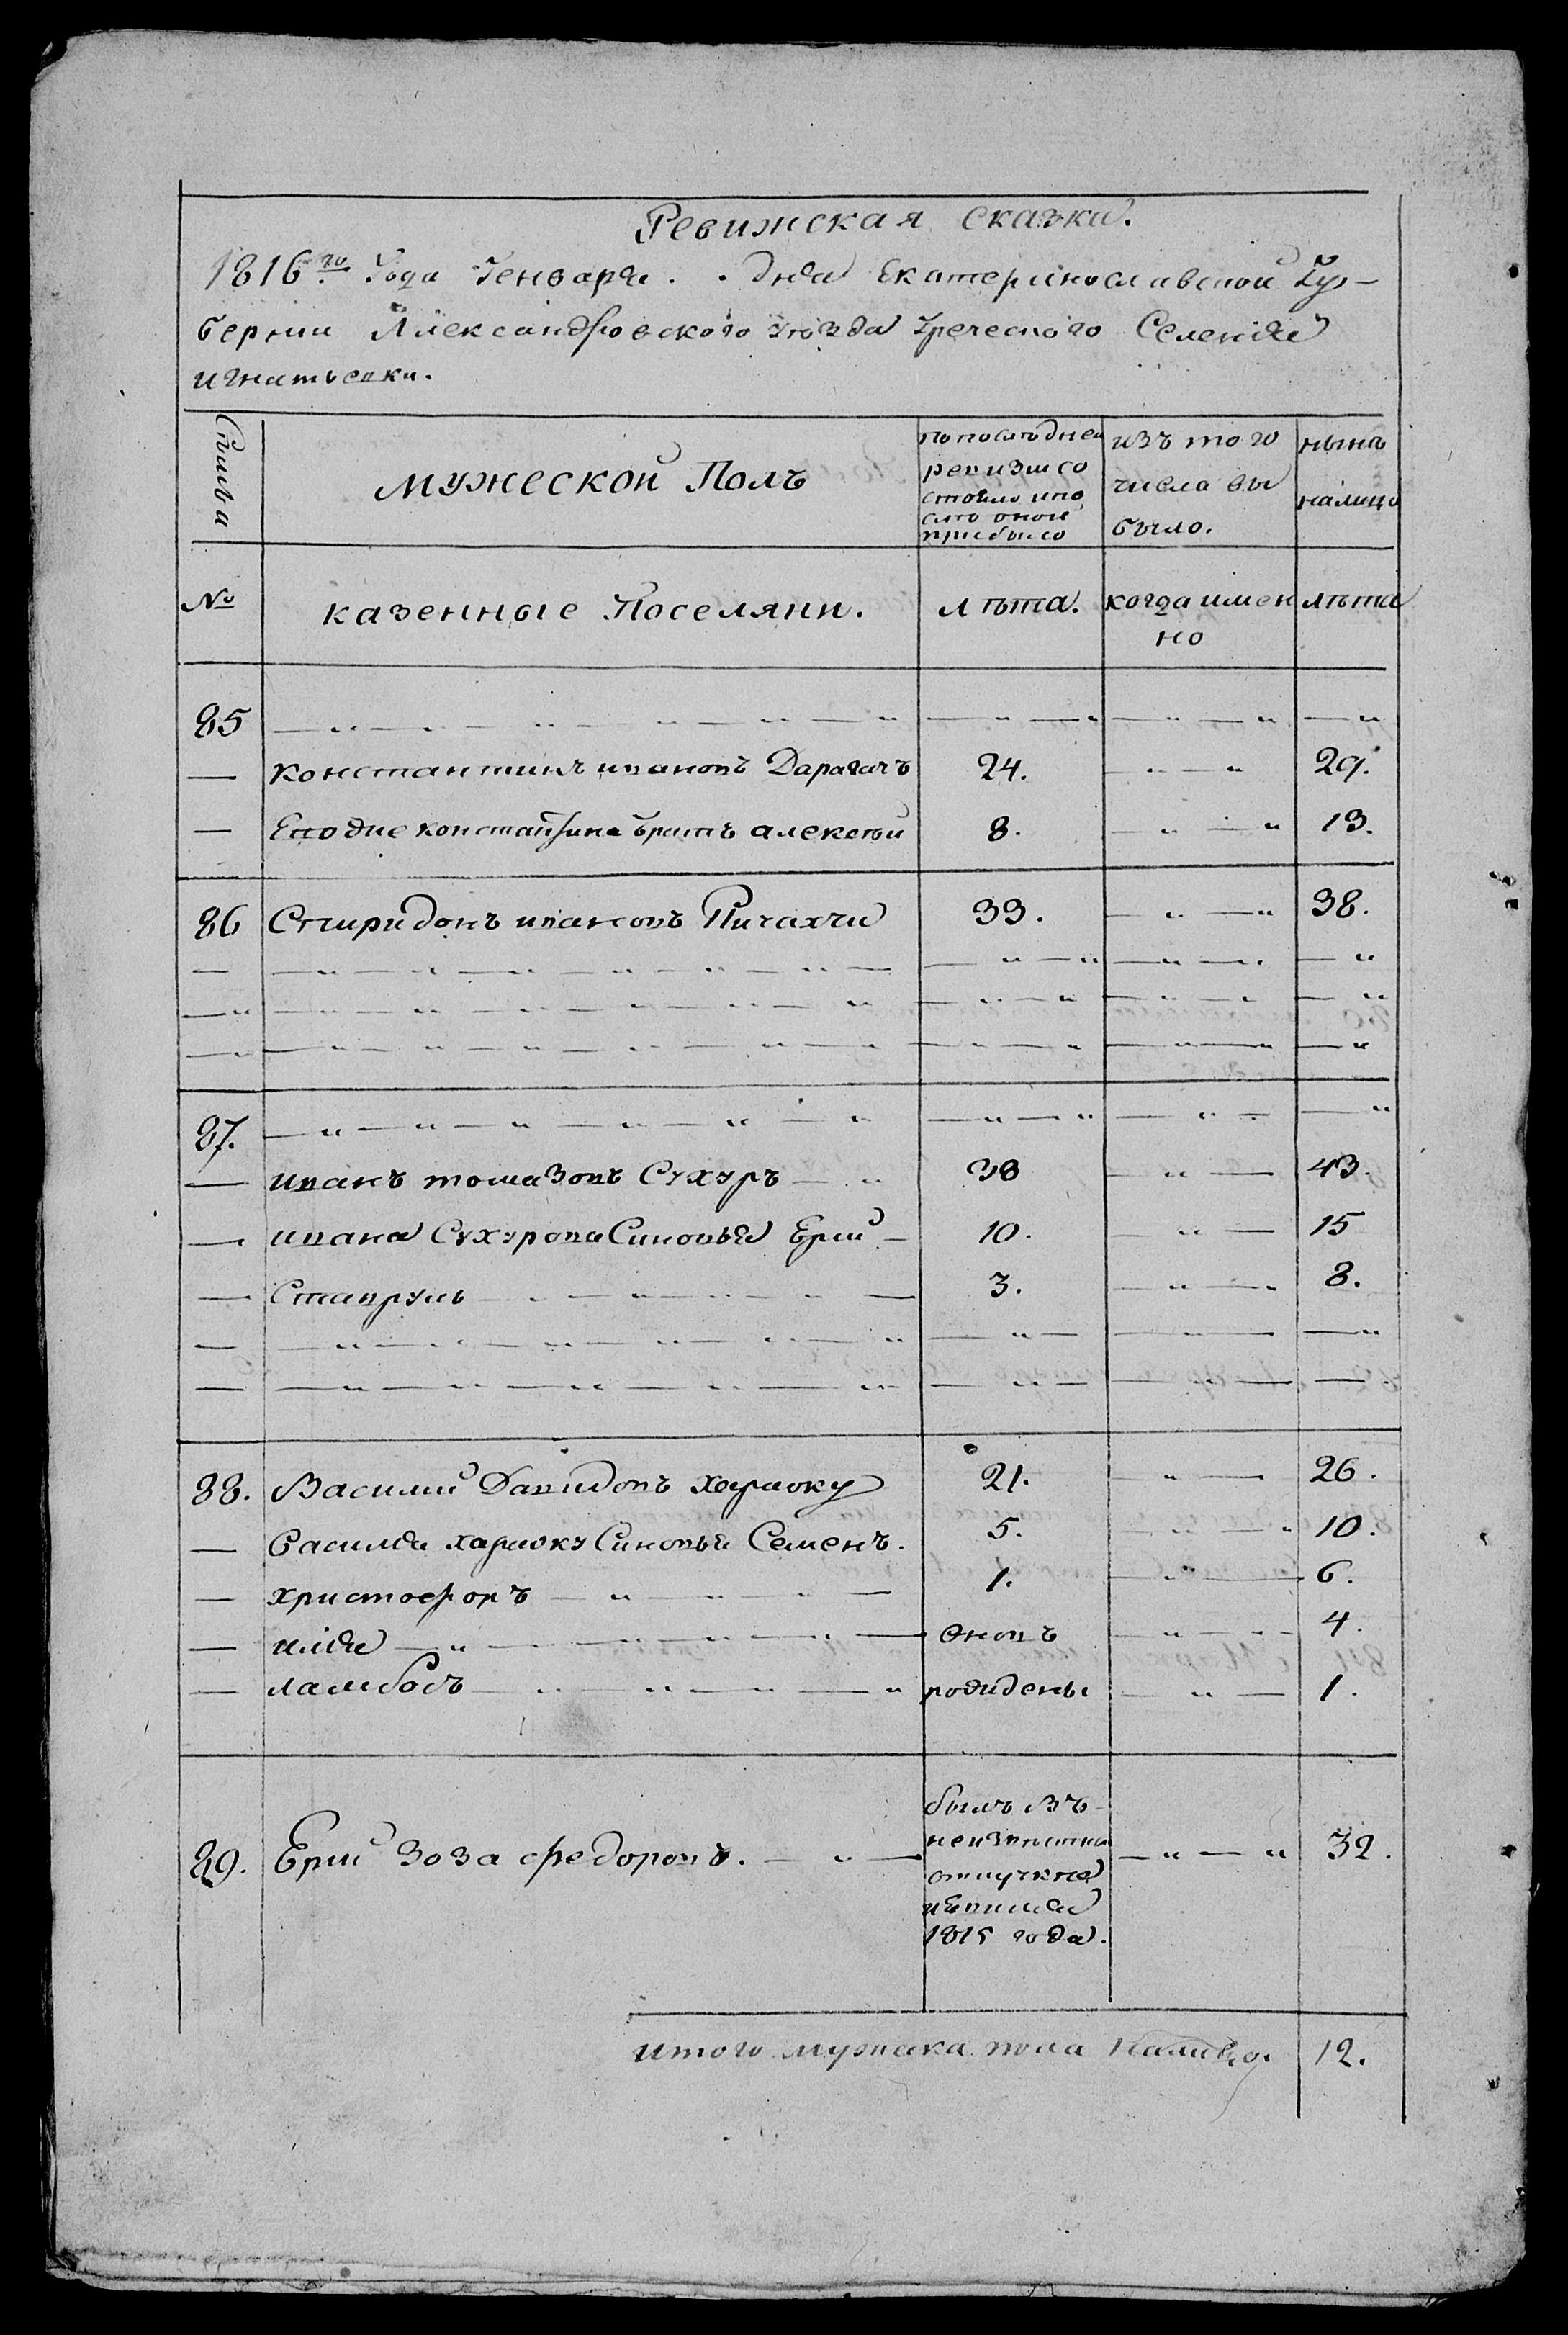 Ревижская сказка.
1816го Года Генваря . . дня Екатеринославской Гу-
берніи Александровского уѣзда Греческого Селенія
игнатьевки.
Семьи
мужеской Полъ
по последней
ревизіи со
стояло и по
слѣ оной
прибыло
изъ того
числа вы
было.
нынѣ
налицо
№
казенные Поселяни.
лѣта.
когда имен
но
лѣта
85
— Константинъ ивановъ Дарагачъ 24. 29.
— Его же константина братъ алексѣй 8. 13.
86 Спиридонъ ивановъ Пичахчи 33. 38.
87.
— иванъ томазовъ Сухуръ 38 43.
— ивана Сухурова Синовья Ерий 10. 15
— Ставруль 3. 8.
88. Василий Давидовъ хараоку 21. 26.
— василия хараоку Синовья Семенъ. 5. 10.
— христофоръ 1. 6.
— илія оновъ 4.
— ламбосъ рождены 1.
89. Ерий Зоза федоровъ. 32.
былъ въ
неизвѣстной
отлучке
и явился
1815 года.
итого мужска пола налицо. 12.